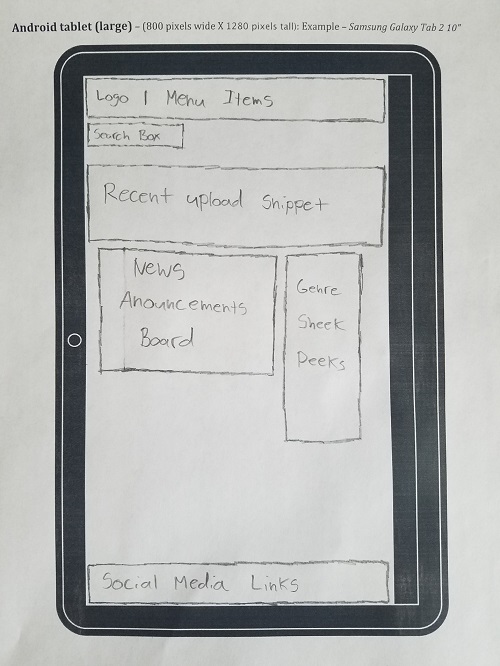 Android tablet (large) – (800 pixels wide X 1280 pixels tall): Example – Samsung Galaxy Tab 2 10"
Logo | Menu Items
Search Box
Recent upload Snippet
News
Anouncements
Board
Genre
Sheek
Peeks
Social Media Links